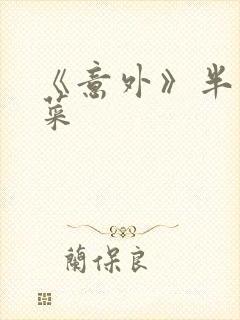 《意外》半
菜
蘭保良